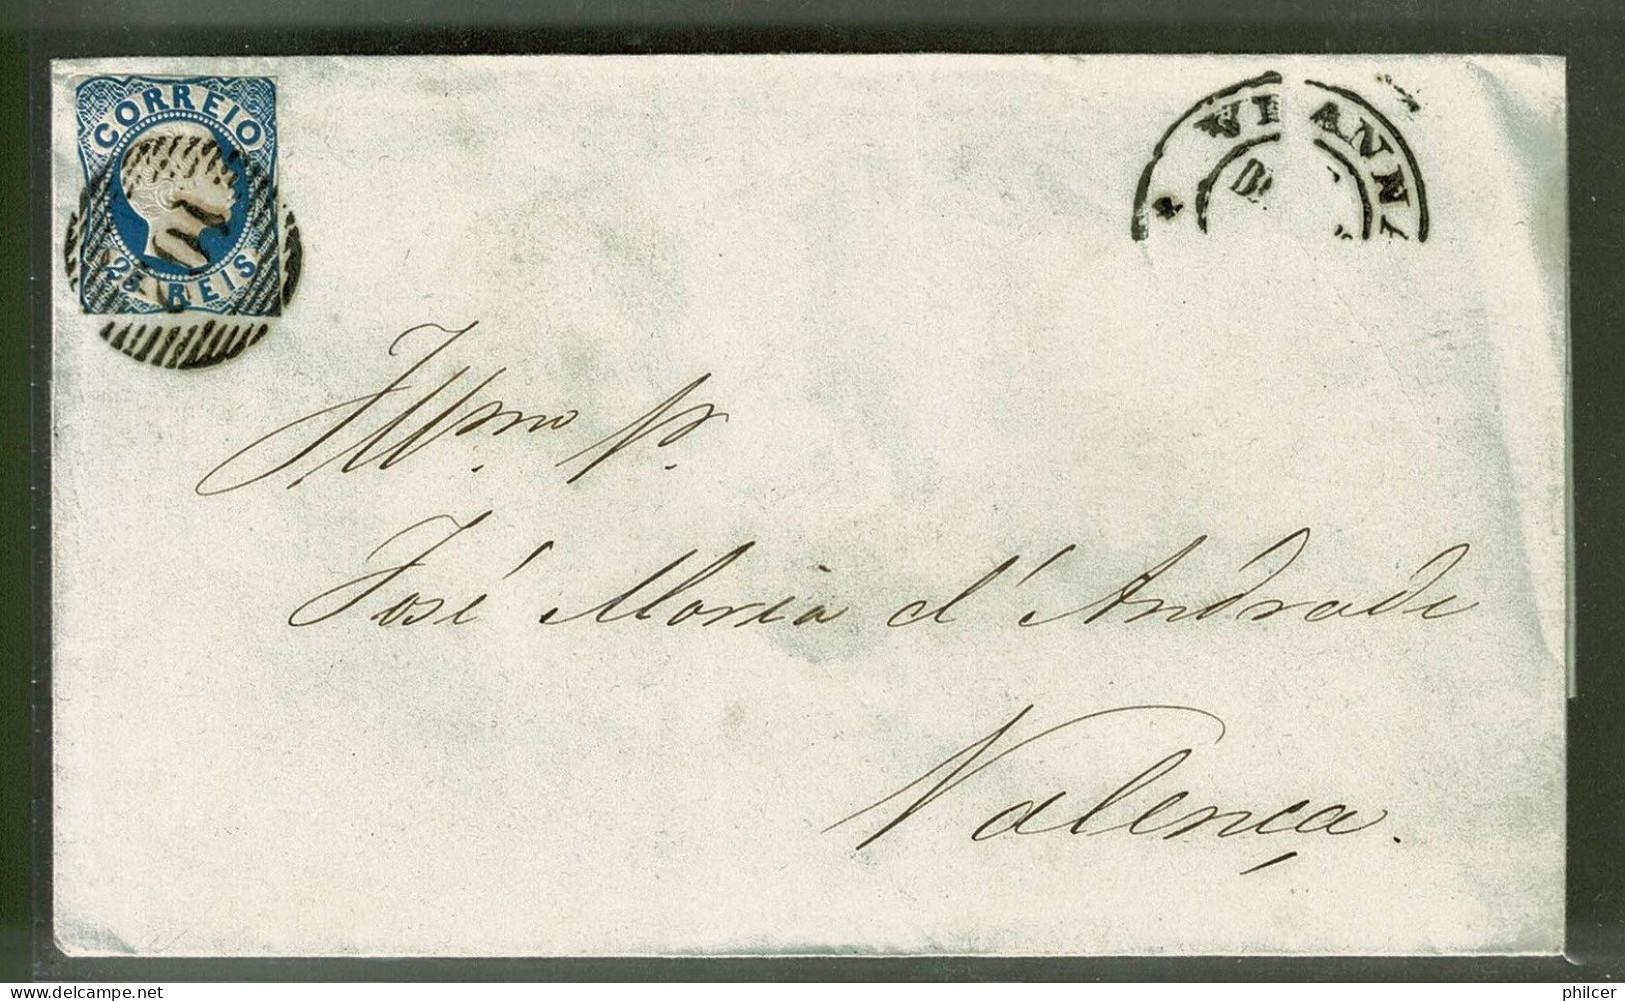 CORREIO
25 REIS
VIANNA
Illmo Sr.
José Maria d'Andrade
Valença.
delcampe.net
philcer